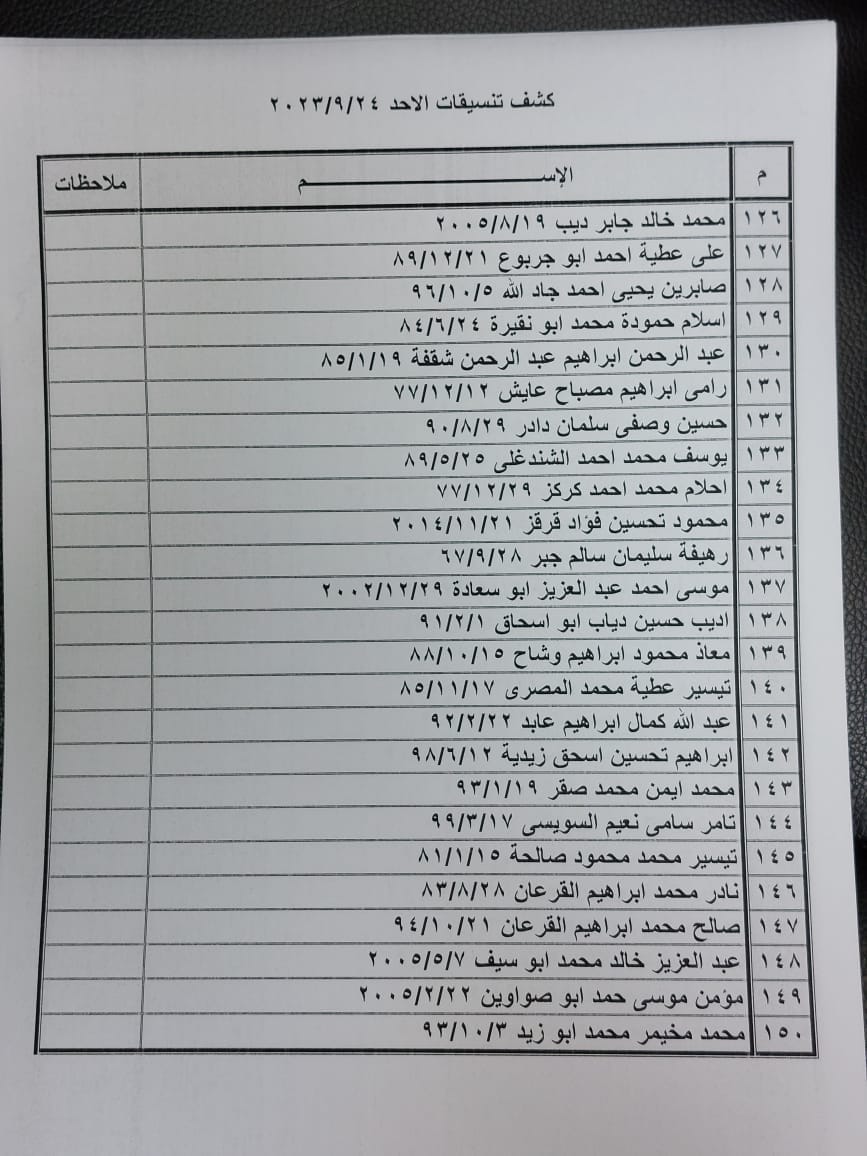 كشف تنسيقات الاحد ٢٠٢٣/٩/٢٤
م الإســـــــــم ملاحظات
١٢٦ محمد خالد جابر ديب ٢٠٠٥/٨/١٩
١٢٧ على عطية احمد ابو جربوع ٨٩/١٢/٢١
١٢٨ صابرين يحيى احمد جاد الله ٩٦/١٠/٥
١٢٩ اسلام حمودة محمد ابو نقيرة ٨٤/٦/٢٤
١٣٠ عبد الرحمن ابراهيم عبد الرحمن شقفة ٨٥/١/١٩
١٣١ رامى ابراهيم مصباح عايش ٧٧/١٢/١٢
١٣٢ حسين وصفى سلمان دادر ٩٠/٨/٢٩
١٣٣ يوسف محمد احمد الشندغلى ٨٩/٥/٢٥
١٣٤ احلام محمد احمد كركز ٧٧/١٢/٢٩
١٣٥ محمود تحسين فؤاد قرقز ٢٠١٤/١١/٢١
١٣٦ رهيفة سليمان سالم جبر ٦٧/٩/٢٨
١٣٧ موسى احمد عبد العزيز ابو سعادة ٢٠٠٢/١٢/٢٩
١٣٨ اديب حسين دياب ابو اسحاق ٩١/٢/١
١٣٩ معاذ محمود ابراهيم وشاح ٨٨/١٠/١٥
١٤٠ تيسير عطية محمد المصرى ٨٥/١١/١٧
١٤١ عبد الله كمال ابراهيم عابد ٩٢/٢/٢٢
١٤٢ ابراهيم تحسين اسحق زيدية ٩٨/٦/١٢
١٤٣ محمد ايمن محمد صقر ٩٣/١/١٩
١٤٤ تامر سامى نعيم السويسى ٩٩/٣/١٧
١٤٥ تيسير محمد محمود صالحة ٨١/١/١٥
١٤٦ نادر محمد ابراهيم القرعان ٨٣/٨/٢٨
١٤٧ صالح محمد ابراهيم القرعان ٩٤/١٠/٢١
١٤٨ عبد العزيز خالد محمد ابو سيف ٢٠٠٥/٥/٧
١٤٩ مؤمن موسى حمد ابو صواوين ٢٠٠٥/٢/٢٢
١٥٠ محمد مخيمر محمد ابو زيد ٩٣/١٠/٣